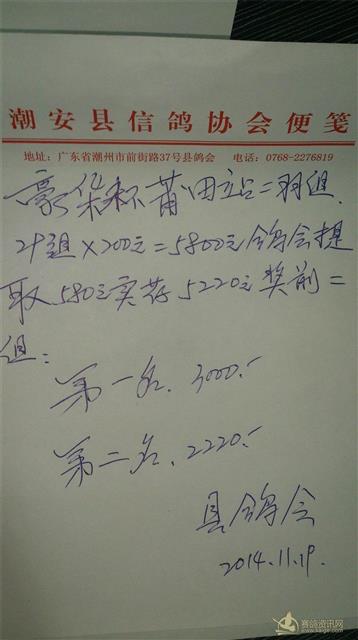 潮安县信鸽协会便笺
地址：广东省潮州市前街路37号县鸽会 电话：0768-2276819
豪华杯莆田站二羽组.
29组×200元=5800元鸽会提
取580元实存5220元奖前二
组：
第一名、3000.-
第二名、2220.-
县鸽会
2014.11.19.
赛鸽资讯网
www.saige.com